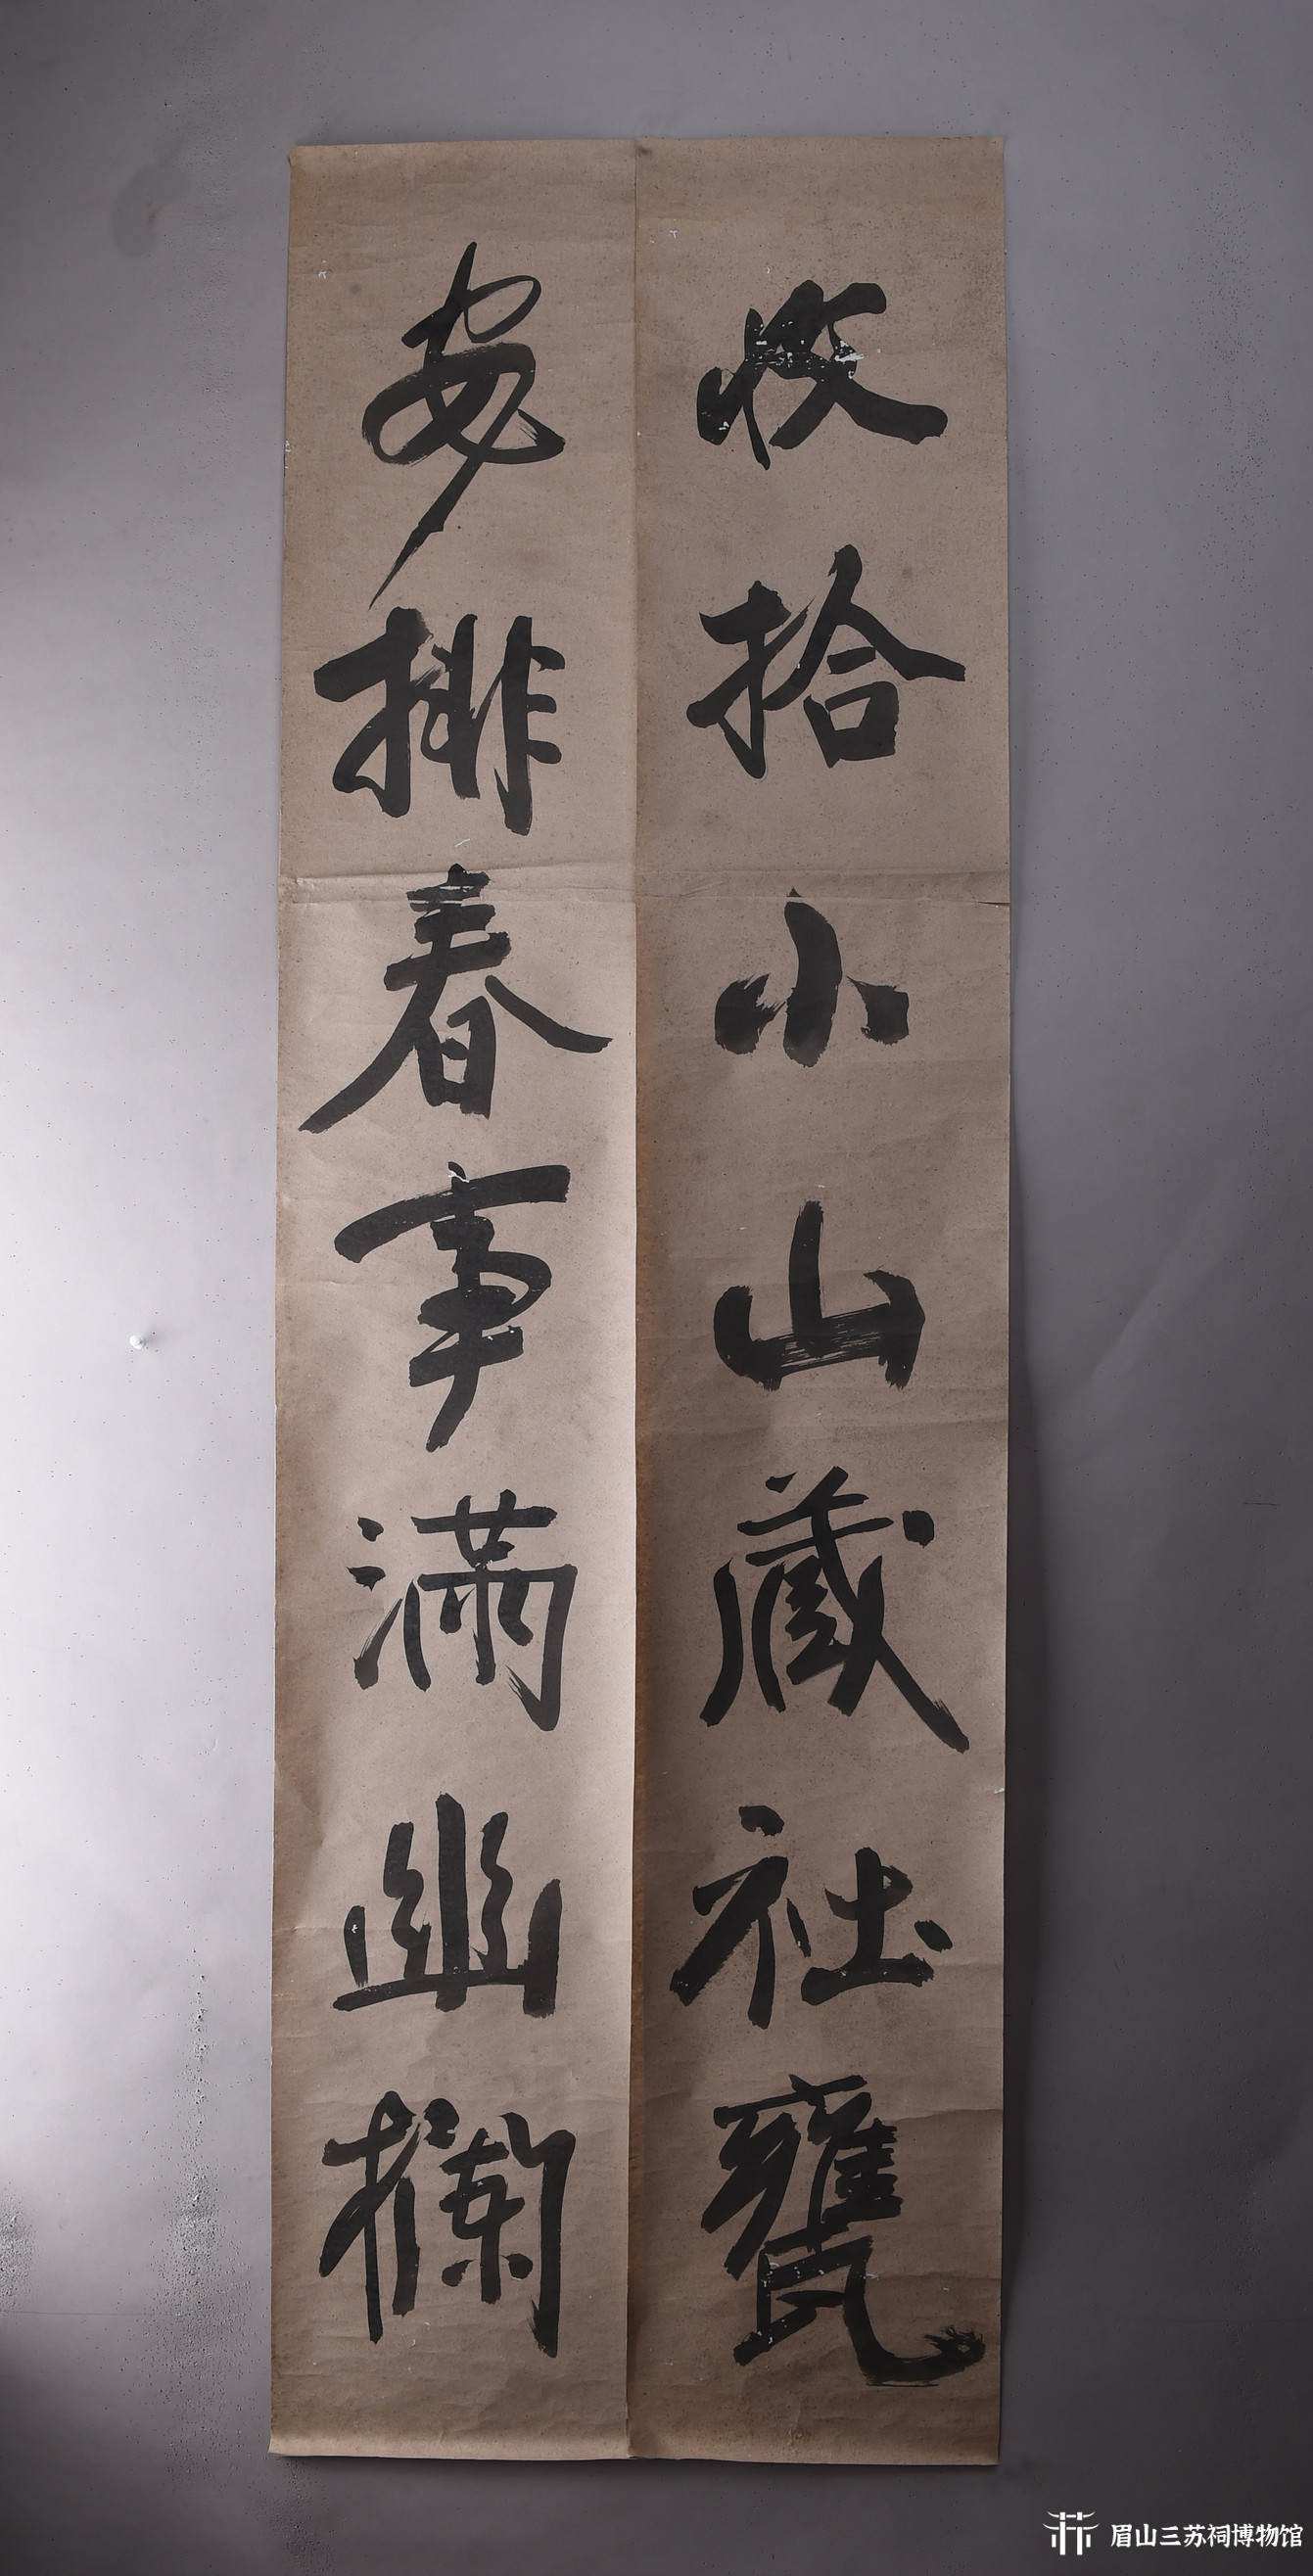 收拾小山藏社甕
安排春事滿幽欄
眉山三苏祠博物馆